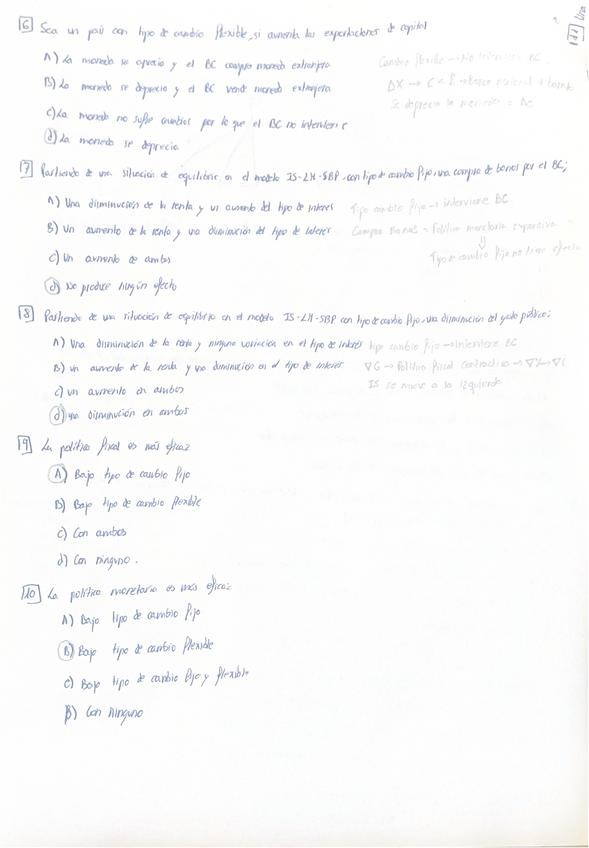 6 Sea un país con tipo de cambio flexible, si aumenta las exportaciones de capital
A) La moneda se aprecia y el BC compra moneda extranjera
Cambio flexible → No interviene BC.
B) La moneda se deprecia y el BC vende moneda extranjera
C) La moneda no sufre cambios por lo que el BC no interviene
Se deprecia la moneda =
d) La moneda se deprecia
7 Partiendo de una situación de equilibrio en el modelo IS-LM-SBP, con tipo de cambio fijo, una compra de bonos por el BC;
A) Una disminución de la renta y un aumento del tipo de interés
Tipo cambio fijo → interviene BC
B) Un aumento de la renta y una disminución del tipo de interés
Compra Bonos = Política monetaria expansiva
⇓
C) Un aumento de ambos
Tipo de cambio fijo no tiene efecto
d) No produce ningún efecto
8 Partiendo de una situación de equilibrio en el modelo IS-LM-SBP con tipo de cambio fijo, una disminución del gasto público:
A) Una disminución de la renta y ninguna variación en el tipo de interés
tipo cambio fijo → Interviene BC
B) un aumento de la renta y una disminución en el tipo de interés
∇G → Política fiscal contractiva → ∇Y → ∇i
C) un aumento en ambos
IS se mueve a la izquierda
d) una disminución en ambos
9 La política fiscal es más eficaz
A) Bajo tipo de cambio fijo
B) Bajo tipo de cambio flexible
C) Con ambos
d) Con ninguno.
10 La política monetaria es más eficaz
A) Bajo tipo de cambio fijo
B) Bajo tipo de cambio flexible
C) Bajo tipo de cambio fijo y flexible
D) Con ninguno